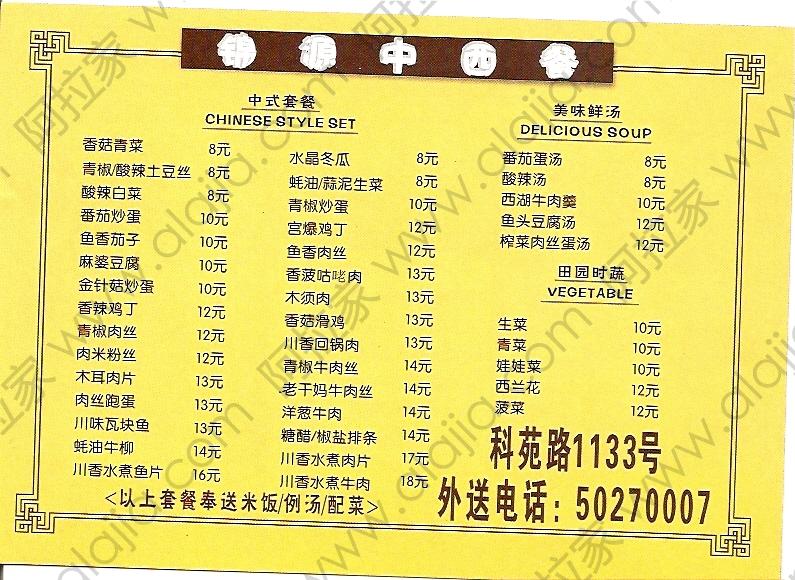 锦源中西餐
中式套餐
CHINESE STYLE SET
香菇青菜 8元
青椒/酸辣土豆丝 8元
酸辣白菜 8元
番茄炒蛋 10元
鱼香茄子 10元
麻婆豆腐 10元
金针菇炒蛋 10元
香辣鸡丁 12元
青椒肉丝 12元
肉米粉丝 12元
木耳肉片 13元
肉丝跑蛋 13元
川味瓦块鱼 13元
蚝油牛柳 14元
川香水煮鱼片 16元
水晶冬瓜 8元
蚝油/蒜泥生菜 8元
青椒炒蛋 10元
宫爆鸡丁 12元
鱼香肉丝 12元
香菠咕咾肉 13元
木须肉 13元
香菇滑鸡 13元
川香回锅肉 13元
青椒牛肉丝 14元
老干妈牛肉丝 14元
洋葱牛肉 14元
糖醋/椒盐排条 14元
川香水煮肉片 17元
川香水煮牛肉 18元
<以上套餐奉送米饭/例汤/配菜>
美味鲜汤
DELICIOUS SOUP
番茄蛋汤 8元
酸辣汤 8元
西湖牛肉羹 10元
鱼头豆腐汤 12元
榨菜肉丝蛋汤 12元
田园时蔬
VEGETABLE
生菜 10元
青菜 10元
娃娃菜 10元
西兰花 12元
菠菜 12元
科苑路1133号
外送电话：50270007
阿拉家 www.alajia.com